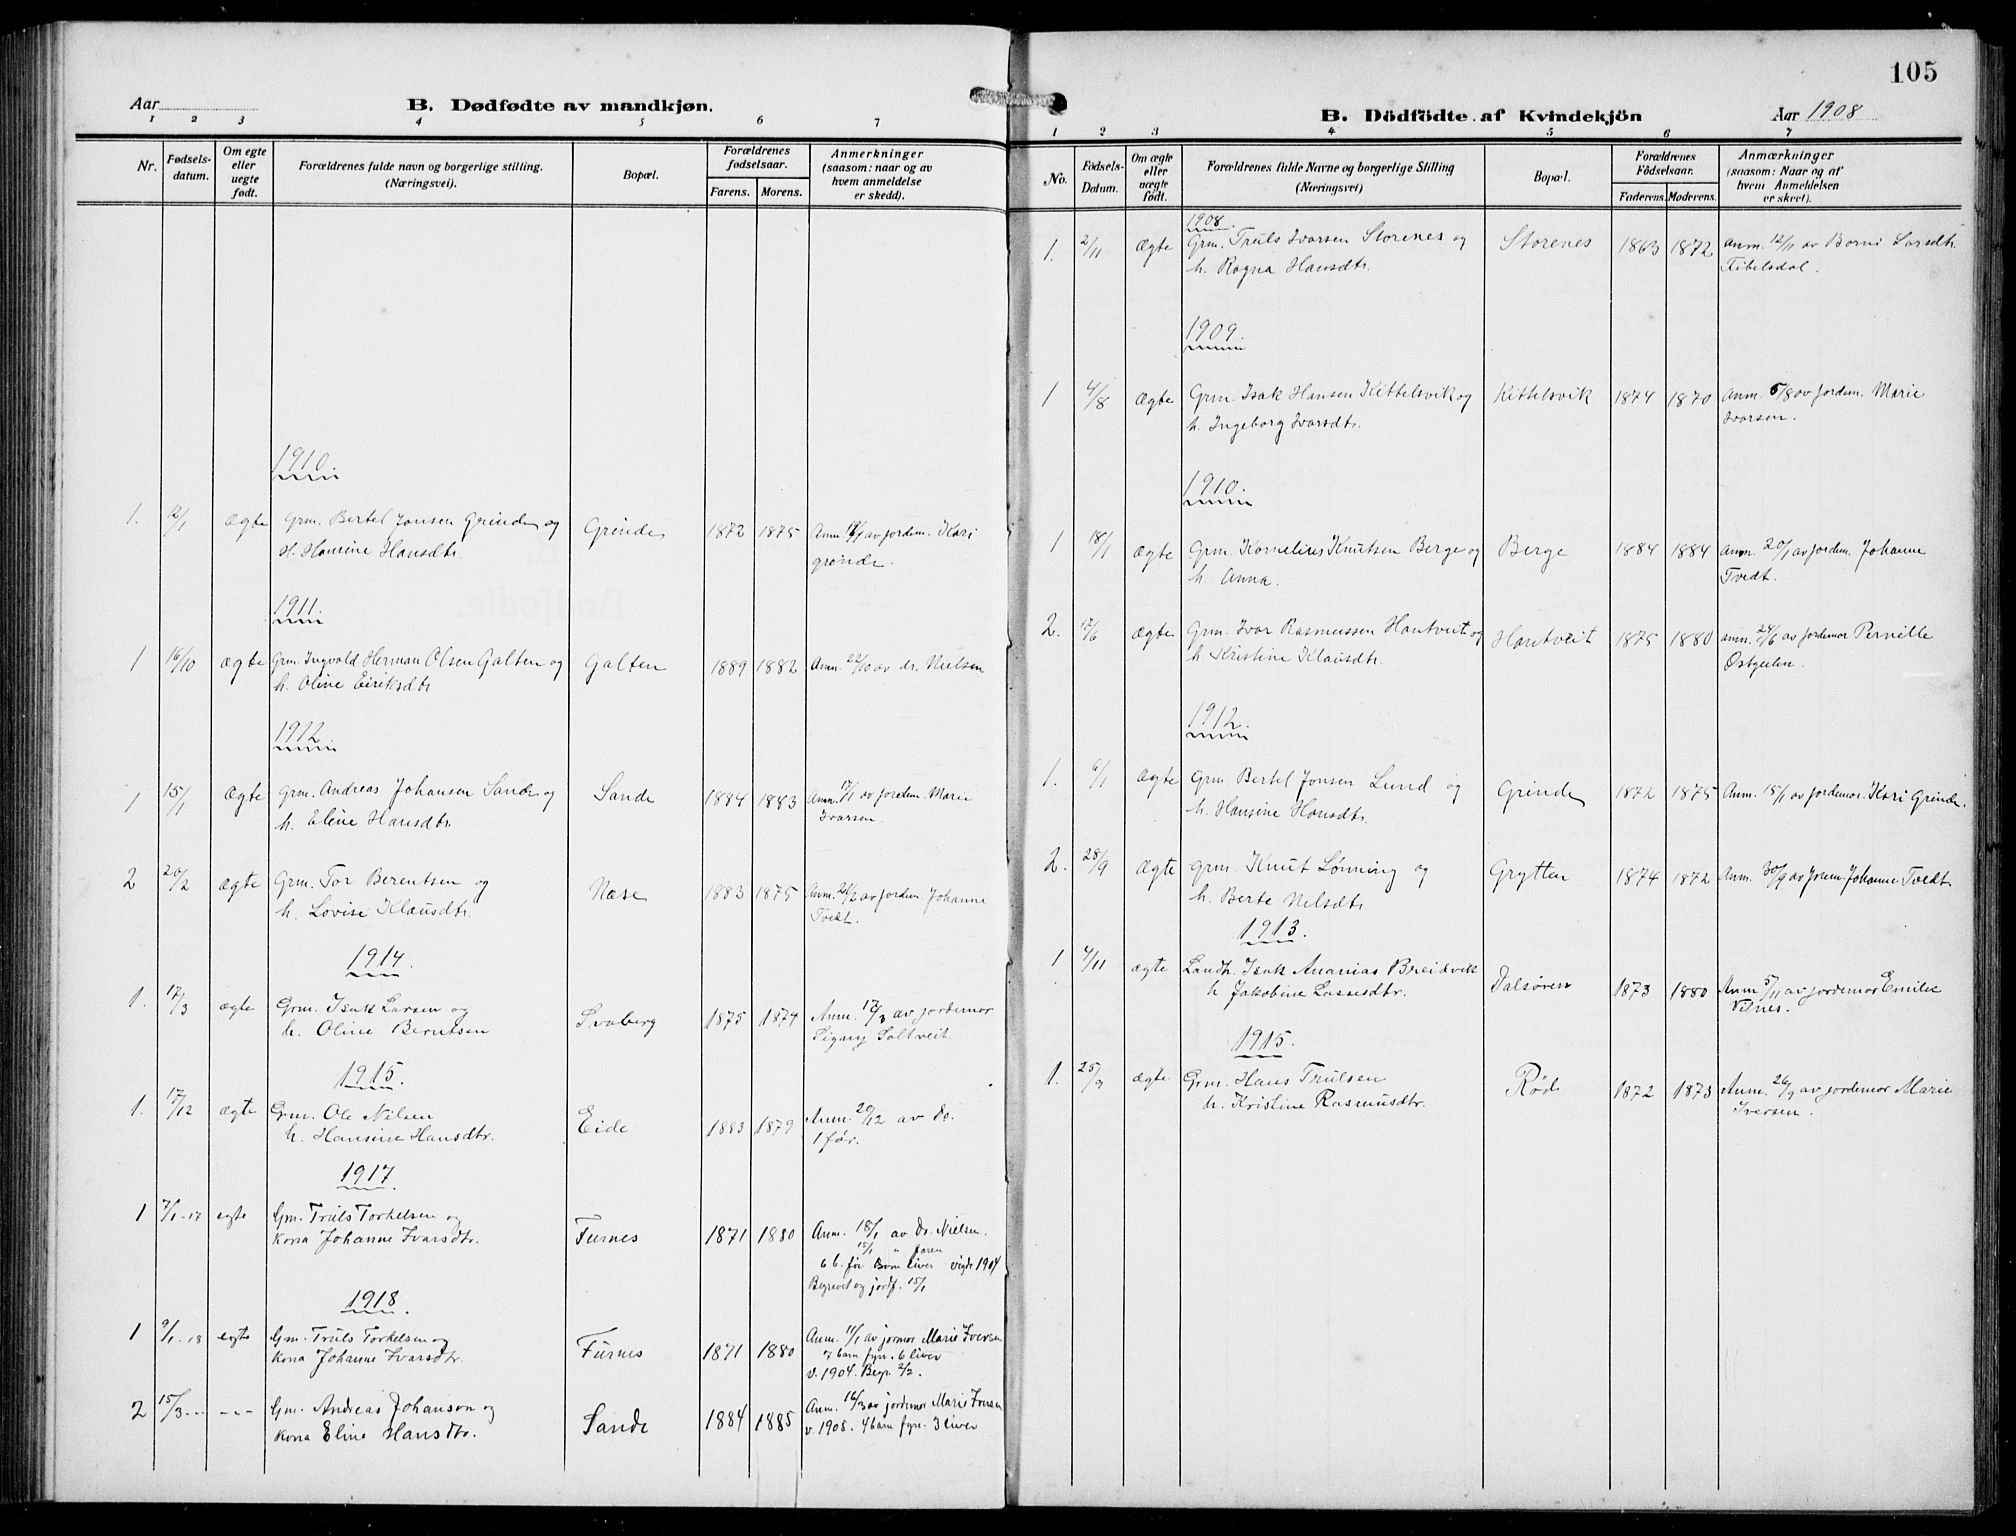 Aar
B. Dødfødte av mandkjøn.
1 2 3 4 5 6 7
Nr.
Fødsels-
datum.
Om egte
eller
uegte
født.
Forældrenes fulde navn og borgerlige stilling.
(Næringsvei).
Bopæl.
Forældrenes
fødselsaar.
Farens. Morens.
Anmerkninger
(saasom: naar og av
hvem anmeldelse
er skedd).
1910.
1. 12/1 Ægte Grm. Bertel Jonsen Grinde og Grinde 1872 1875 Anm. av jordem. Kari
H. Hansine Hansdtr. grinde.
1911.
1 16/10 Ægte Grm. Ingvald Herman Olsen Galten og Galten 1889 1882 Anm. 22/10 av dr. Nielsen
h. Oline Eiriksdtr
1912.
1 15/1 Ægte Grm. Andreas Johansen Sande og Sande 1884 1883 Anm. 17/1 av jordem. Marie
h. Eline Hansdtr. Ivarsen.
2 20/2 Ægte Grm. Tor Berentsen og Næse 1883 1875 Anm. 21/2 av jordem Johanne
h. Lovise Klausdtr. Tvedt.
1914.
1. 17/3 ægte Grm. Isak Larsen og Svaberg 1875 1874 Anm. 17/3 av jordemor
h. Oline Berntsen Signy Saltveit.
1915.
1. 17/12 ægte Grm. Ole Nilsen Eide 1883 1879 Anm. 20/12 av Do.
h. Hansine Hansdtr. 1 før.
1917.
1 7/1-17 egte Gm. Truls Torkelsen og Furnes 1871 1880 Anm. 18/1 av Dr. Nielsen.
Kona Johanne Ivarsdtr. 15/1 " faren
6 b. før Barn liver vigde 1904
Begravet og jordf. 15/1
1918.
1 9/1-18 egte Gm. Truls Torkelsen og Furnes 1871 1880 Anm. 11/1 av jormor Marie Iversen
Kona Johanne Ivarsdtr. 7 barn fyrr. 6 liver
v. 1904. Begr. 2/2.
2 15/3--- --- Gm. Andreas Johanson og Sande 1884 1885 Anm. 16/3 av jordemor Marie Iversen
Kona Eline Hansdtr. v. 1908. 4 barn fyrr. 3 liver
105
B. Dödfödte af Kvindekjön
Aar 1908
1 2 3 4 5 6 7
No.
Födsels-
Datum.
Om ægte
eller
uægte
födt.
Forældrenes fulde Navne og borgerlige Stilling
(Næringsvei)
Bopæl.
Forældrenes
Födselsaar.
Faderens. Moderens.
Anmærkninger
(saasom: Naar og af
hvem Anmeldelsen
er skeet).
1908.
1. 2/11 Ægte Grm. Truls Ivarsen Storenes og Storenes 1863 1872 Anm. 12/11 av Larsdtr.
h. Ragna Hansdtr. Fibelsdal.
1909.
1 4/8 Ægte Grm. Isak Hansen Kittelsvik og Kittelsvik 1874 1870 Anm. 5/8 av jordem. Marie
h. Ingeborg Ivarsdtr. Ivarsen.
1910.
1 18/1 Ægte Grm. Kornelius Knutsen Berge og Berge 1884 1884 Anm. 20/1 av jordem. Johanne
h. Anna. Tvedt.
2. 17/6 Ægte Grm. Ivar Rasmussen Hantveit og Hantveit 1875 1880 anm. 24/6 av jordemor Pernille
h Kristine Klausdtr. Østgulen.
1912.
1. 6/1 Ægte Grm. Bertel Jonsen Lund og Grinde 1872 1875 Anm. 15/1 av jordemor. Kari Grinde.
h. Hansine Hansdtr.
2. 28/9 Ægte grm. Knut Lønning og Grytten 1874 1872 Anm. 30/9 av Jorem. Johanne Tvedt
h. Berte Nelsdtr.
1913.
1 4/11 ægte Landh. Isak Ananias Breidvik Dalsøren 1873 1880 Anm 5/11 av jordemor Emilie
h Jakobine Lassesdtr. Vilnes.
1915.
1. 25/9 ægte Grm. Hans Trulsen Rød 1872 1873 Anm. 26/9 av jordemor Marie
h. Kristine Rasmusdtr. Iversen.